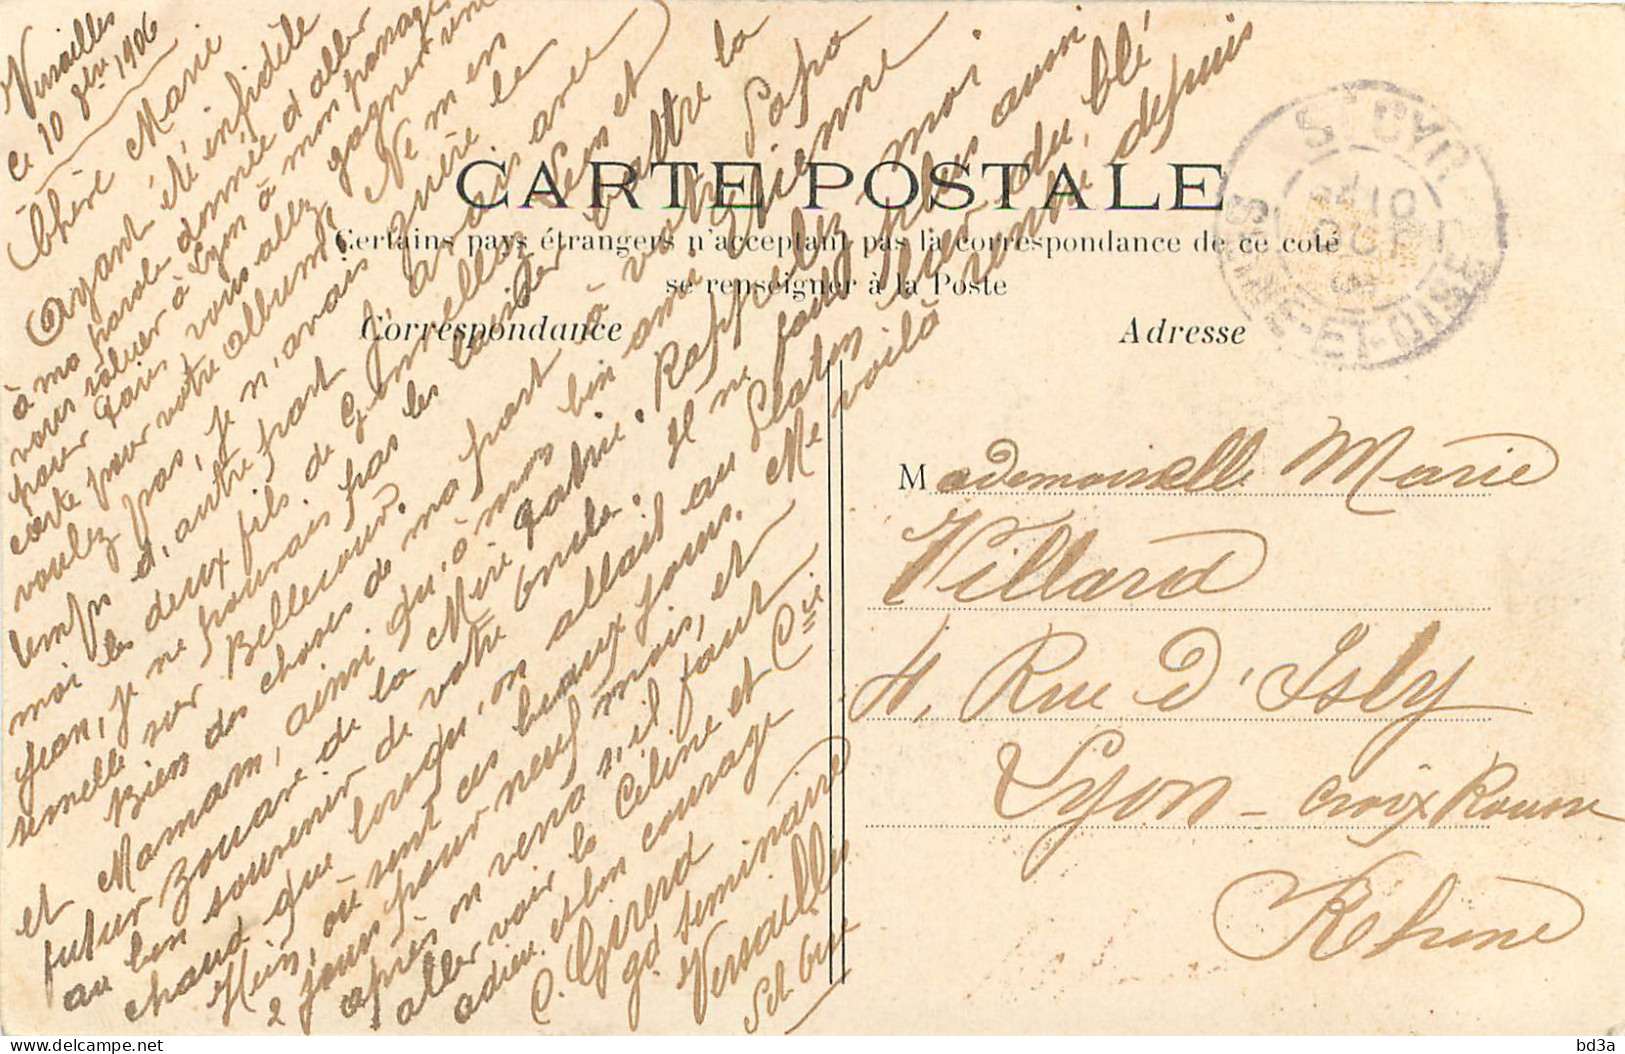 Versailles
ce 10 8bre 1906
Chère Marie
Ayant été infidèle
à ma parole donnée d'aller
vous saluer à Lyon à mon passage
pour Paris vous allez gagner une
carte pour votre album. Ne m'en
voulez pas, je n'avais guère le
temps d'autre part j'avais avec
moi les deux fils de Gonnellaz Rem et
Jean, je ne pouvais pas les laisser battre la
semelle sur Bellecour.
Bien des choses de ma part à votre Papa
et Maman, ainsi qu'à mon bon ami Etienne
futur Zouave de la Mère Patrie. Rappelez moi
au bon souvenir de votre oncle. Il ne fait plus aussi
chaud que lorsqu'on allait au Platon lier du blé
Hein, où sont ces beaux jours. Me voilà tondu, depuis
2 jours pour neuf mois, et
après on verra s'il faut
aller voir la Céline et Cie
adieu et bon courage
C. Girerd
gd séminaire
Versailles
St et Oise
CARTE POSTALE
Certains pays étrangers n'acceptant pas la correspondance de ce coté
se renseigner à la Poste
Correspondance
Adresse
ST CYR
10
OCT
SEINE-ET-OISE
Mademoiselle Marie
Villard
4, Rue d'Isly
Lyon - Croix Rousse
Rhône
delcampe.net
bd3a